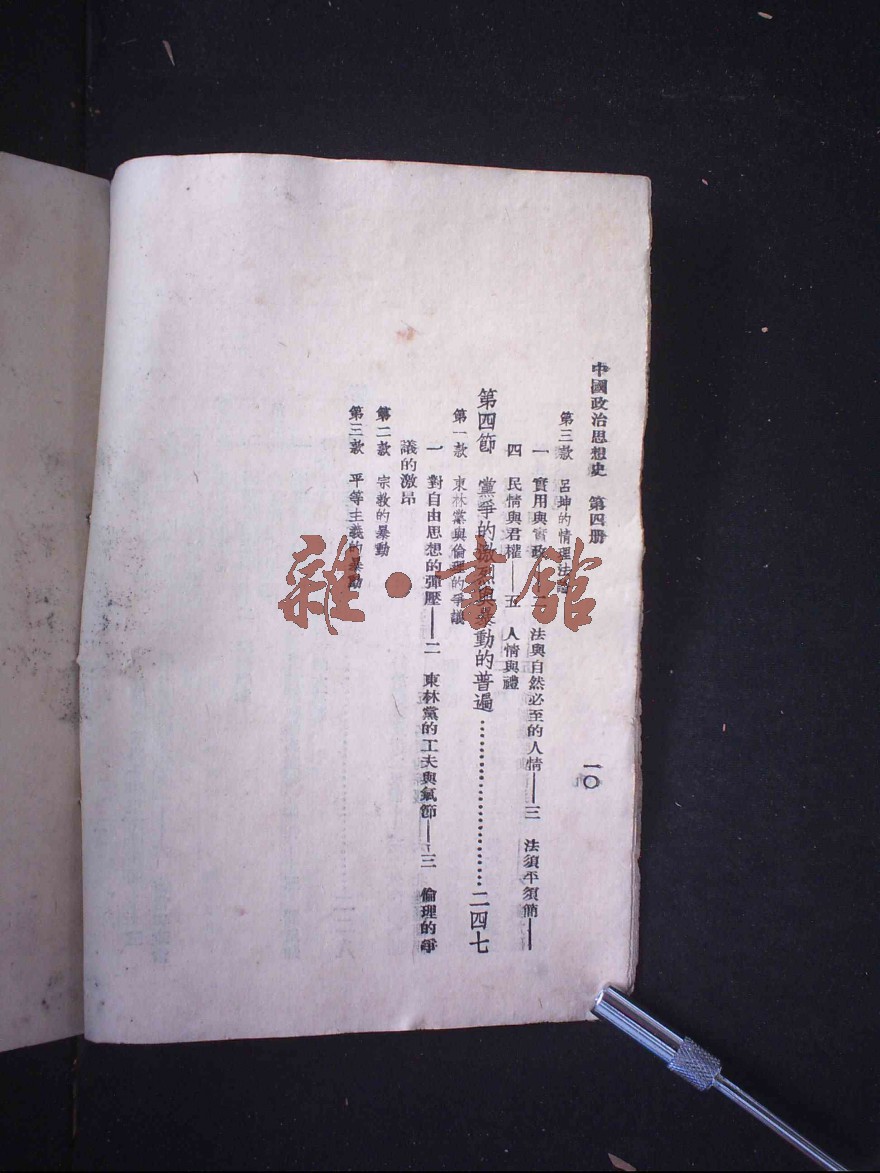 中國政治思想史 第四册 一〇
第三款 呂坤的情理法論
一 實用與實政——二 法與自然必至的人情——三 法須平須簡——
四 民情與君權——五 人情與禮
第四節 黨爭的激烈與暴動的普遍……………………二四七
第一款 東林黨與倫理的爭議
一 對自由思想的彈壓——二 東林黨的工夫與氣節——三 倫理的爭
議的激昂
第二款 宗教的暴動
第三款 平等主義的暴動
雜·書館